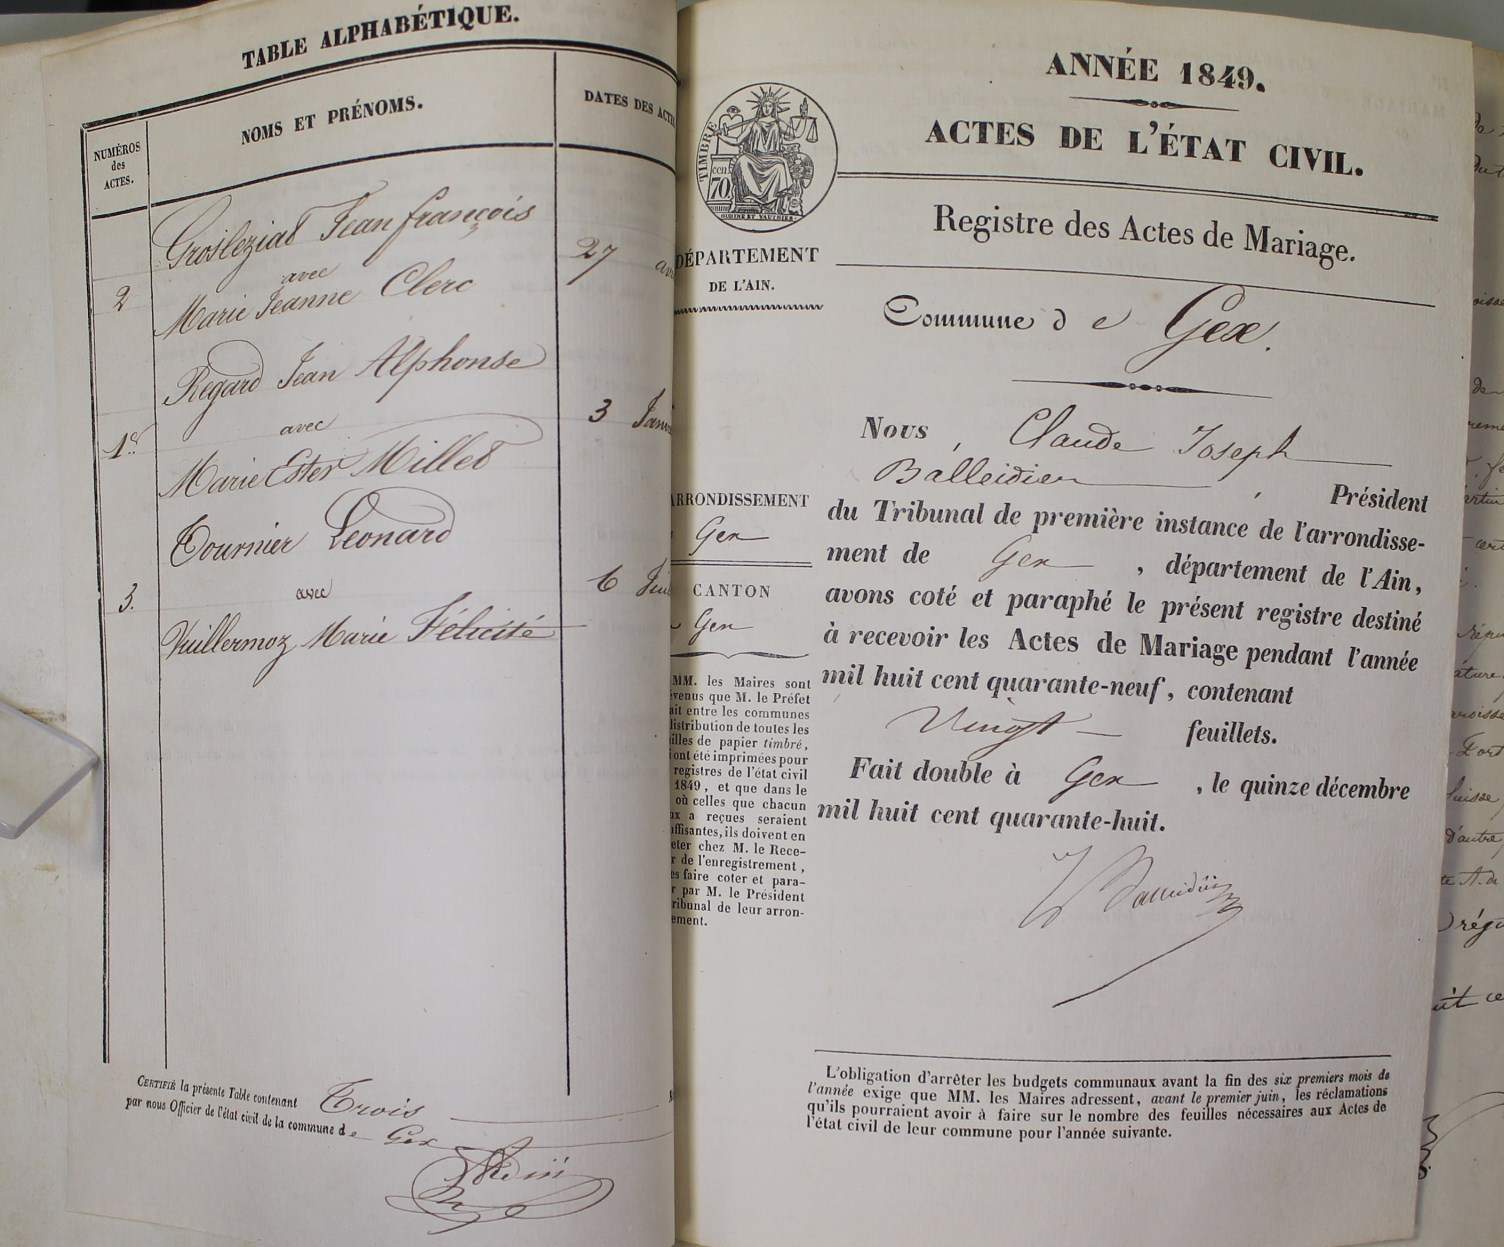 TABLE ALPHABÉTIQUE.
NUMÉROS
des
ACTES.
NOMS ET PRÉNOMS.
DATES DES ACTE
Grosleziat Jean françois
avec
2
Marie Jeanne Clerc
27 avr
Regard Jean Alphonse
avec
1er
Marie Ester Millet
3 Janv
Tournier Léonard
avec
3.
Vuillermoz Marie Félicité
6
CERTIFIÉ la présente Table contenant Trois
par nous Officier de l'état civil de la commune de Gex
ANNÉE 1849.
ACTES DE L'ÉTAT CIVIL.
TIMBRE
cen.
70
Registre des Actes de Mariage.
DÉPARTEMENT
DE L'AIN.
Commune de Gex.
ARRONDISSEMENT
Gex
CANTON
Gex
MM. les Maires sont
venus que M. le Préfet
ait entre les communes
distribution de toutes les
illes de papier timbré,
i ont été imprimées pour
registres de l'état civil
1849, et que dans le
où celles que chacun
ux a reçues seraient
uffisantes, ils doivent en
eter chez M. le Rece-
r de l'enregistrement,
es faire coter et para-
r par M. le Président
ribunal de leur arron-
ement.
Nous, Claude Joseph
Balleidier, Président
du Tribunal de première instance de l'arrondisse-
ment de Gex, département de l'Ain,
avons coté et paraphé le présent registre destiné
à recevoir les Actes de Mariage pendant l'année
mil huit cent quarante-neuf, contenant
Vingt feuillets.
Fait double à Gex, le quinze décembre
mil huit cent quarante-huit.
L'obligation d'arrêter les budgets communaux avant la fin des six premiers mois de
l'année exige que MM. les Maires adressent, avant le premier juin, les réclamations
qu'ils pourraient avoir à faire sur le nombre des feuilles nécessaires aux Actes de
l'état civil de leur commune pour l'année suivante.